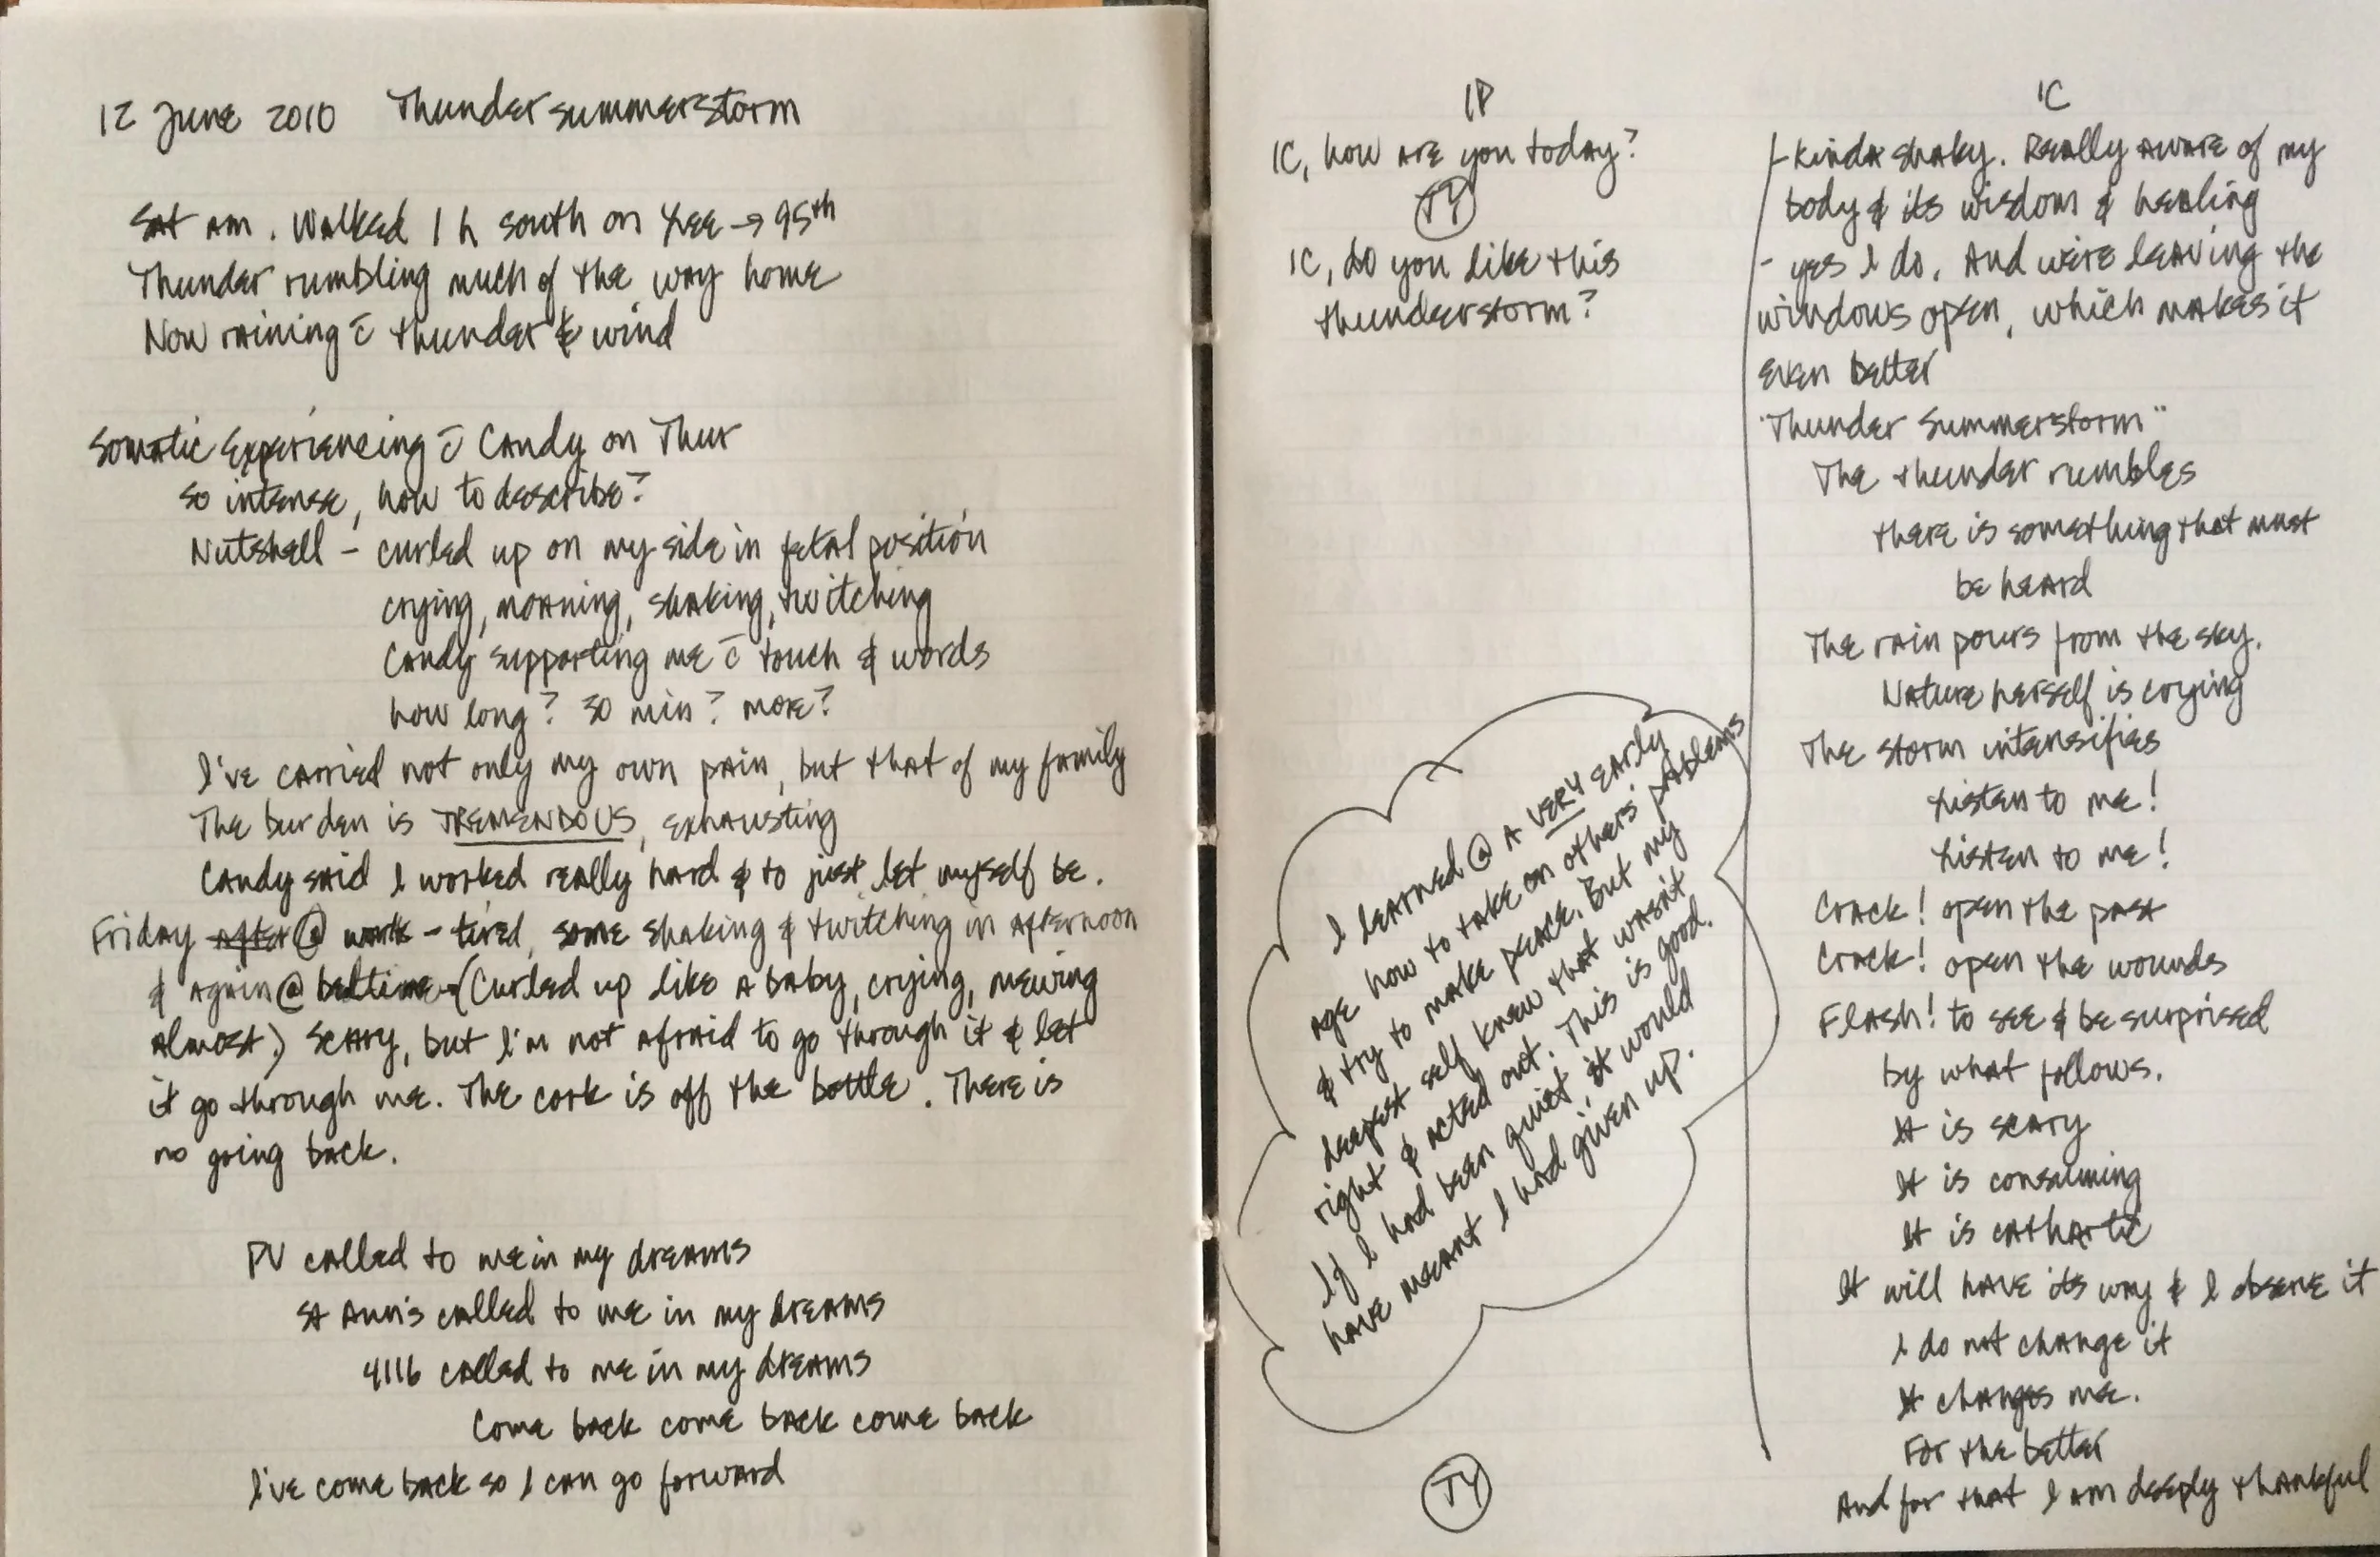 12 June 2010 Thundersummerstorm
Sat am. Walked 1 h south on Lee → 95th
Thunder rumbling much of the way home
Now raining c̄ thunder & wind
Somatic Experiencing c̄ Candy on Thur
so intense, how to describe?
Nutshell - curled up on my side in fetal position
crying, moaning, shaking, twitching
Candy supporting me c̄ touch & words
how long? 30 min? more?
I've carried not only my own pain, but that of my family
The burden is TREMENDOUS, exhausting
Candy said I worked really hard & to just let myself be.
Friday after @ work - tired, some shaking & twitching in afternoon
& again @ bedtime (Curled up like a baby, crying, mewing
almost.) Scary, but I'm not afraid to go through it & let
it go through me. The cork is off the bottle. There is
no going back.
PV called to me in my dreams
St Ann's called to me in my dreams
4116 called to me in my dreams
Come back come back come back
I've come back so I can go forward
IP
IC, how are you today?
TY
IC, do you like this
thunderstorm?
I learned @ a VERY early
age how to take on others' problems
& try to make peace. But my
deepest self knew that wasn't
right & acted out. This is good.
If I had been quiet, it would
have meant I had given up.
TY
IC
- kinda shaky. Really aware of my
body & its wisdom & healing
- yes I do. And we're leaving the
windows open, which makes it
even better
"Thunder Summerstorm"
The thunder rumbles
there is something that must
be heard
The rain pours from the sky.
Nature herself is crying
The storm intensifies
Listen to me!
Listen to me!
Crack! open the past
Crack! open the wounds
Flash! to see & be surprised
by what follows.
It is scary
It is consuming
It is cathartic
It will have its way & I observe it
I do not change it
It changes me.
For the better
And for that I am deeply thankful